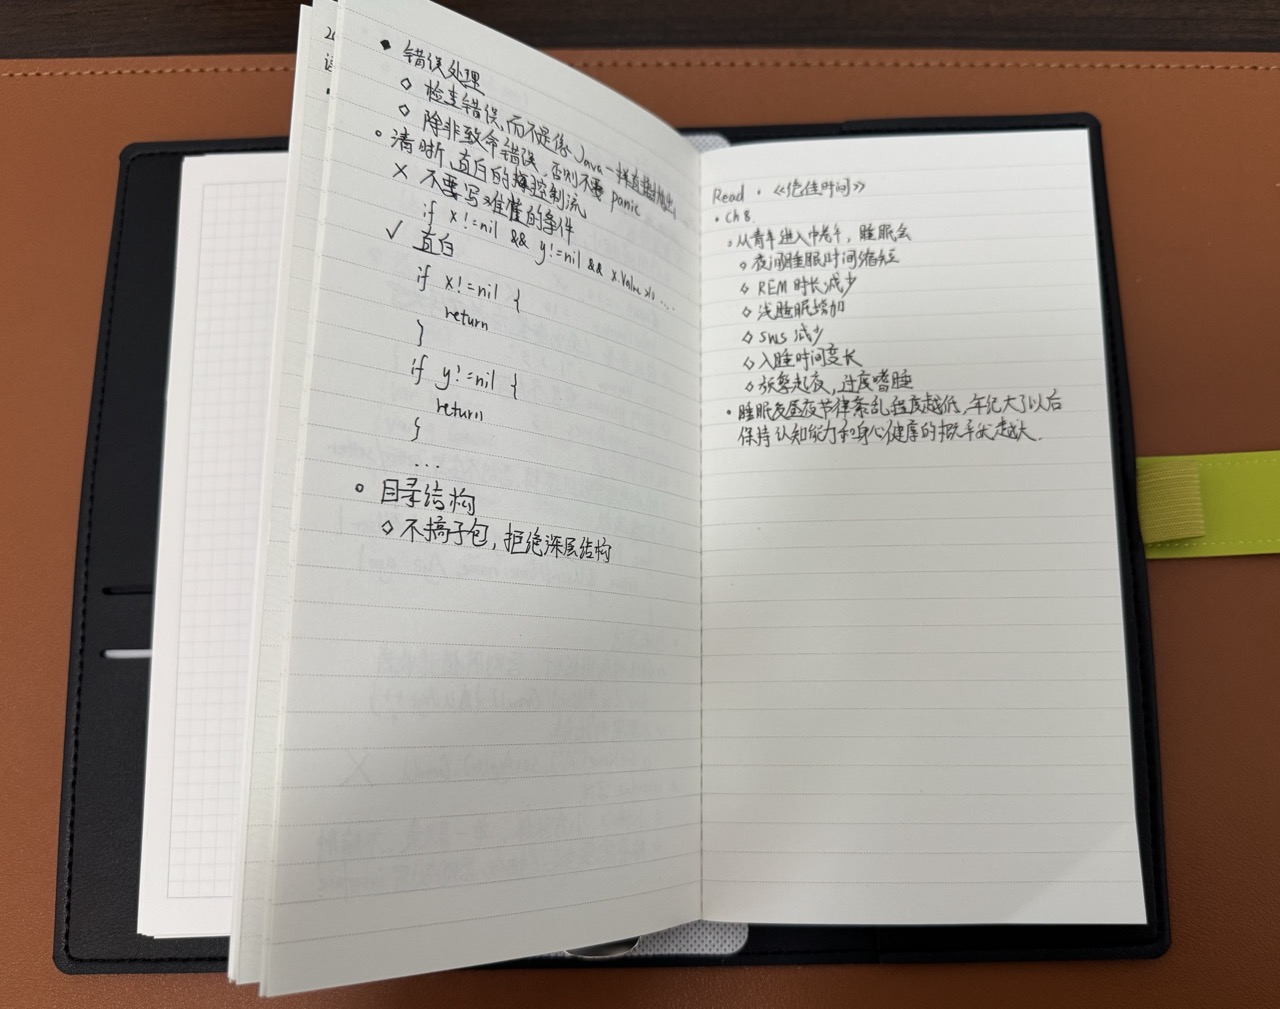 ◆ 错误处理
◇ 检查错误,而不是像 Java 一样直接抛出。
◇ 除非致命错误,否则不要 panic
◦ 清晰、直白的控制流
× 不要写难懂的条件
if x!=nil && y!=nil && x.Value>0 ....
✓ 直白
if x!=nil {
return
}
if y!=nil {
return
}
...
◦ 目录结构
◇ 不搞子包,拒绝深层结构
Read · 《绝佳时间》
• Ch 8.
◦ 从青年进入中老年,睡眠会
◇ 夜间睡眠时间缩短
◇ REM 时长减少
◇ 浅睡眠增加
◇ SWS 减少
◇ 入睡时间变长
◇ 频繁起夜,过度嗜睡
• 睡眠及昼夜节律紊乱程度越低,年纪大了以后
保持认知能力和身心健康的概率就越大.